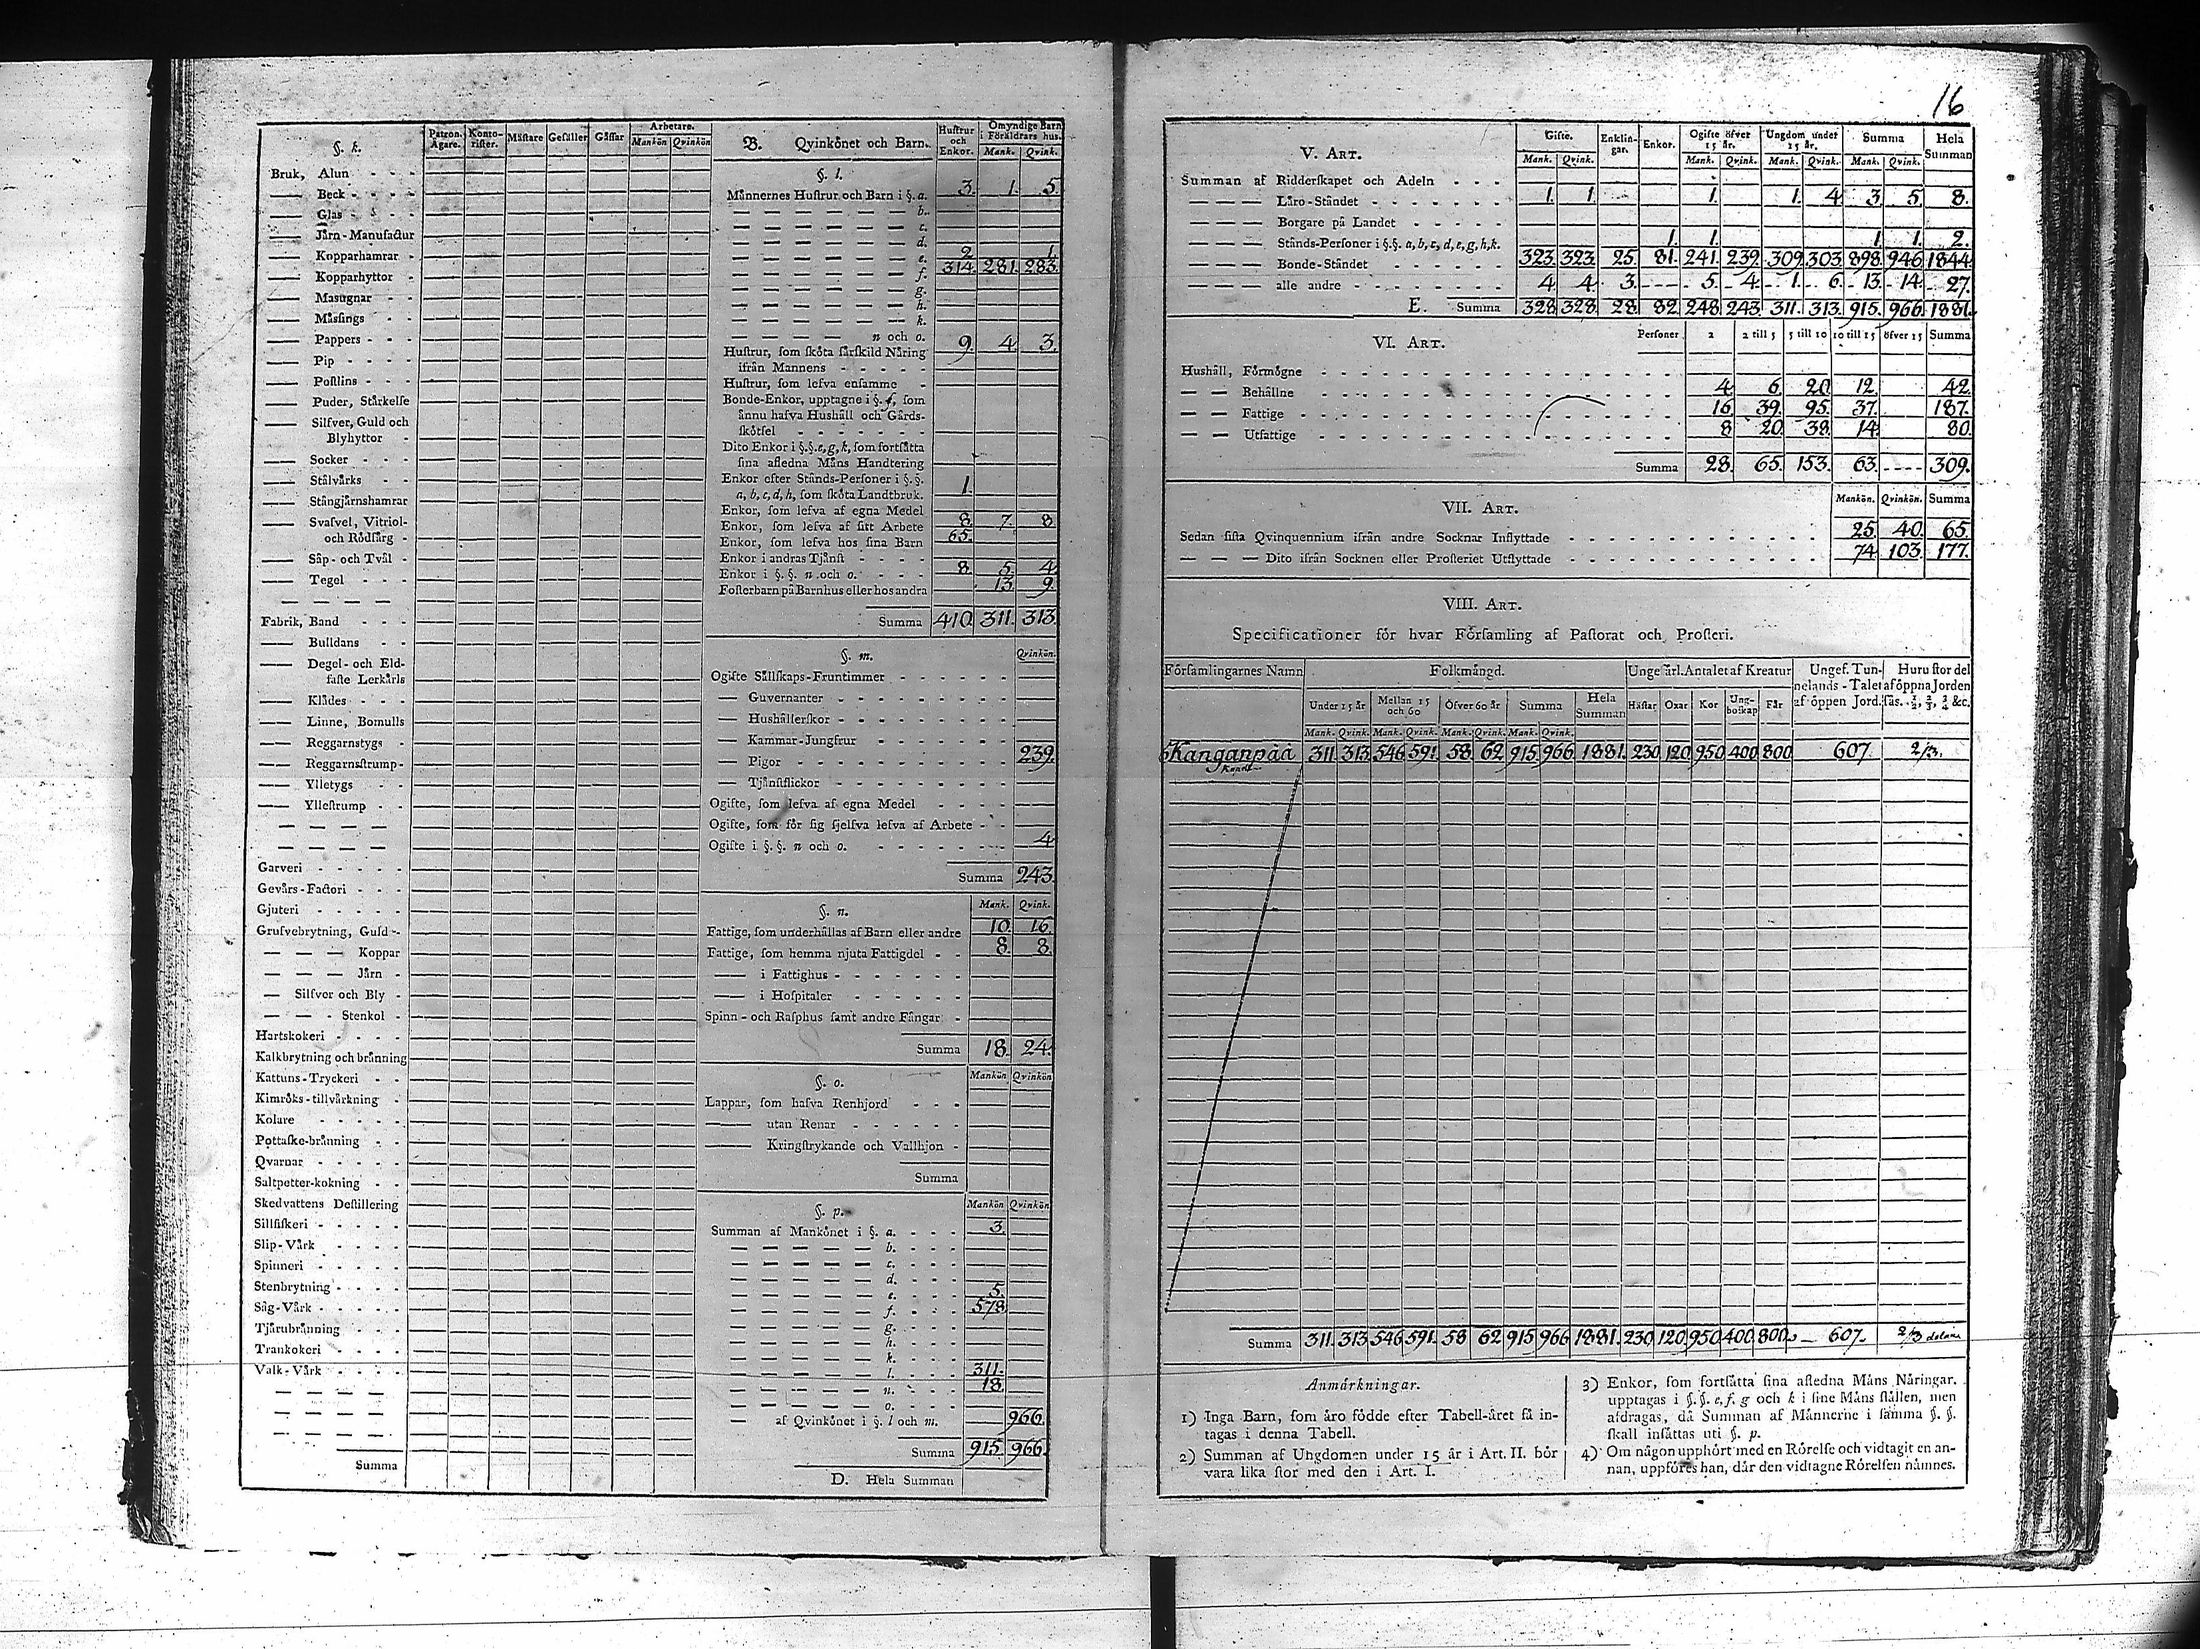 16
§. k.
Patron. Ägare.
Konto-rister.
Mästare
Gesäller
Gåssar
Arbetare.
Mankön
Qvinkön
Bruk, Alun
— Beck
— Glas
— Jårn-Manufactur
— Kopparhamrar
— Kopparhyttor
— Masugnar
— Måssings
— Pappers
— Pip
— Postlins
— Puder, Stårkelse
— Silfver, Guld och
Blyhyttor
— Socker
— Stålvårks
— Stångjårnshamrar
— Svafvel, Vitriol-
och Rödfårg
— Såp- och Tvål
— Tegel
Fabrik, Band
— Bulldans
— Degel- och Eld-
faste Lerkårls
— Klådes
— Linne, Bomulls
— Reggarnstygs
— Reggarnsstrump
— Ylletygs
— Yllestrump
Garveri
Gevårs-Factori
Gjuteri
Grufvebrytning, Guld
— — — Koppar
— — — Jårn
— Silfver och Bly
— — Stenkol
Hartskokeri
Kalkbrytning och brånning
Kattuns-Tryckeri
Kimröks-tillvårkning
Kolare
Pottaske-brånning
Qvarnar
Saltpetter-kokning
Skedvattens Destillering
Sillfiskeri
Slip-Vårk
Spinneri
Stenbrytning
Såg-Vårk
Tjårubrånning
Trankokeri
Valk-Vårk
Summa
B. Qvinkönet och Barn.
Hustrur och Enkor.
Omyndige Barn i Föräldrars hus.
Mank. Qvink.
§. l.
Månnernes Hustrur och Barn i §. a. 3. 1. 5.
— b.
— c.
— d.
— e. 2. 1.
— f. 314. 281. 283.
— g.
— h.
— k.
— n och o. 9. 4. 3.
Hustrur, som sköta sårskild Nåring
ifrån Mannens
Hustrur, som lefva ensamme
Bonde-Enkor, upptagne i §. f, som
ånnu hafva Hushåll och Gårds-
skötsel
Dito Enkor i §.§. e, g, k, som fortsåtta
sina afledna Måns Handtering
Enkor efter Stånds-Personer i §.§.
a, b, c, d, h, som sköta Landtbruk. 1.
Enkor, som lefva af egna Medel
Enkor, som lefva af sitt Arbete 8. 7. 8.
Enkor, som lefva hos sina Barn 65.
Enkor i andras Tjånst
Enkor i §. §. n och o. 8. 5. 4.
Fosterbarn på Barnhus eller hos andra 13. 9.
Summa 410. 311. 313.
§. m. Qvinkön.
Ogifte Sållskaps-Fruntimmer
— Guvernanter
— Hushållerskor
— Kammar-Jungfrur
— Pigor 239.
— Tjånstflickor
Ogifte, som lefva af egna Medel
Ogifte, som för sig sjelfva lefva af Arbete
Ogifte i §. §. n och o. 4.
Summa 243.
§. n. Mank. Qvink.
Fattige, som underhållas af Barn eller andre 10. 16.
Fattige, som hemma njuta Fattigdel 8. 8.
— i Fattighus
— i Hospitaler
Spinn- och Rasphus samt andre Fångar
Summa 18. 24.
§. o. Mankön Qvinkön
Lappar, som hafva Renhjord
— utan Renar
— Kringstrykande och Vallhjon
Summa
§. p. Mankön Qvinkön
Summan af Mankönet i §. a. 3.
— b.
— c.
— d.
— e. 5.
— f. 578.
— g.
— h.
— k.
— l. 311.
— n. 18.
— o.
— af Qvinkönet i §. l och m. 966.
Summa 915. 966.
D. Hela Summan
V. Art.
Gifte. Mank. Qvink.
Enklin-gar.
Enkor.
Ogifte öfver 15 år. Mank. Qvink.
Ungdom under 15 år. Mank. Qvink.
Summa Mank. Qvink.
Hela Summan
Summan af Ridderskapet och Adeln
— — — Låro-Ståndet 1. 1. 1. 1. 4. 3. 5. 8.
— — — Borgare på Landet
— — — Stånds-Personer i §.§. a, b, c, d, e, g, h, k. 1. 1. 1. 1. 2.
— — — Bonde-Ståndet 323. 323. 25. 81. 241. 239. 309. 303. 898. 946. 1844.
— — — alle andre 4. 4. 3. 5. 4. 1. 6. 13. 14. 27.
E. Summa 328. 328. 28. 82. 248. 243. 311. 313. 915. 966. 1881.
VI. Art. Personer 2 2 till 5 5 till 10 10 till 15 öfver 15 Summa
Hushåll, Förmögne
— — Behållne 4. 6. 20. 12. 42.
— — Fattige 16. 39. 95. 37. 187.
— — Utfattige 8. 20. 38. 14. 80.
Summa 28. 65. 153. 63. 309.
VII. Art. Mankön. Qvinkön. Summa
Sedan sista Qvinquennium ifrån andre Socknar Inflyttade 25. 40. 65.
— — — Dito ifrån Socknen eller Prosteriet Utflyttade 74. 103. 177.
VIII. Art.
Specificationer för hvar Församling af Pastorat och Prosteri.
Församlingarnes Namn
Folkmångd.
Ungefårl. Antalet af Kreatur
Ungef. Tun-nelands-Talet af öppen Jord.
Huru stor del af öppna Jorden sås. ½, ⅔, ¾ &c.
Under 15 år
Mellan 15 och 60
Öfver 60 år
Summa
Hela Summan
Håstar Oxar Kor Ung-boskap Får
Mank. Qvink. Mank. Qvink. Mank. Qvink. Mank. Qvink.
Kanganpää 311. 313. 546. 591. 58. 62. 915. 966. 1881. 230. 120. 950. 400. 800. 607. 2/3.
Summa 311. 313. 546. 591. 58 62. 915. 966. 1881. 230. 120. 950. 400. 800. 607. 2/3 delar
Anmårkningar.
1) Inga Barn, som åro födde efter Tabell-året få in-
tagas i denna Tabell.
2) Summan af Ungdomen under 15 år i Art. II. bör
vara lika stor med den i Art. I.
3) Enkor, som fortsåtta sina afledna Måns Nåringar,
upptagas i §. §. e, f, g och k i sine Måns stållen, men
afdragas, då Summan af Månnerne i samma §. §.
skall insåttas uti §. p.
4) Om någon upphört med en Rörelse och vidtagit en an-
nan, uppföres han, dår den vidtagne Rörelsen nåmnes.